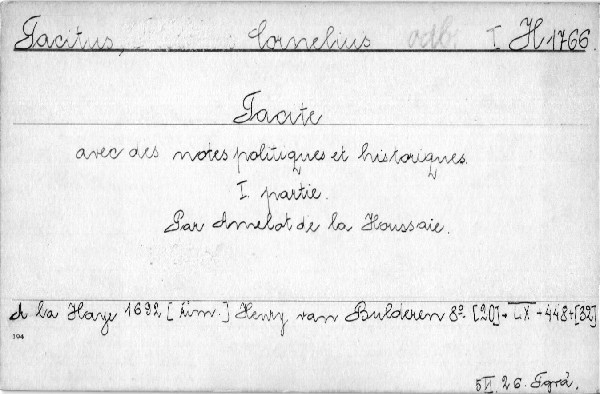 Tacitus, Cornelius odb. I H 1766.
Tacite
avec des notes politiques et historiques.
I. partie.
Par Amelot de la Houssaie.
A la Haye 1692 [řím.] Henry van Bulderen 8º. [20] + LX + 448 + [32]
194
5/VI. 26.